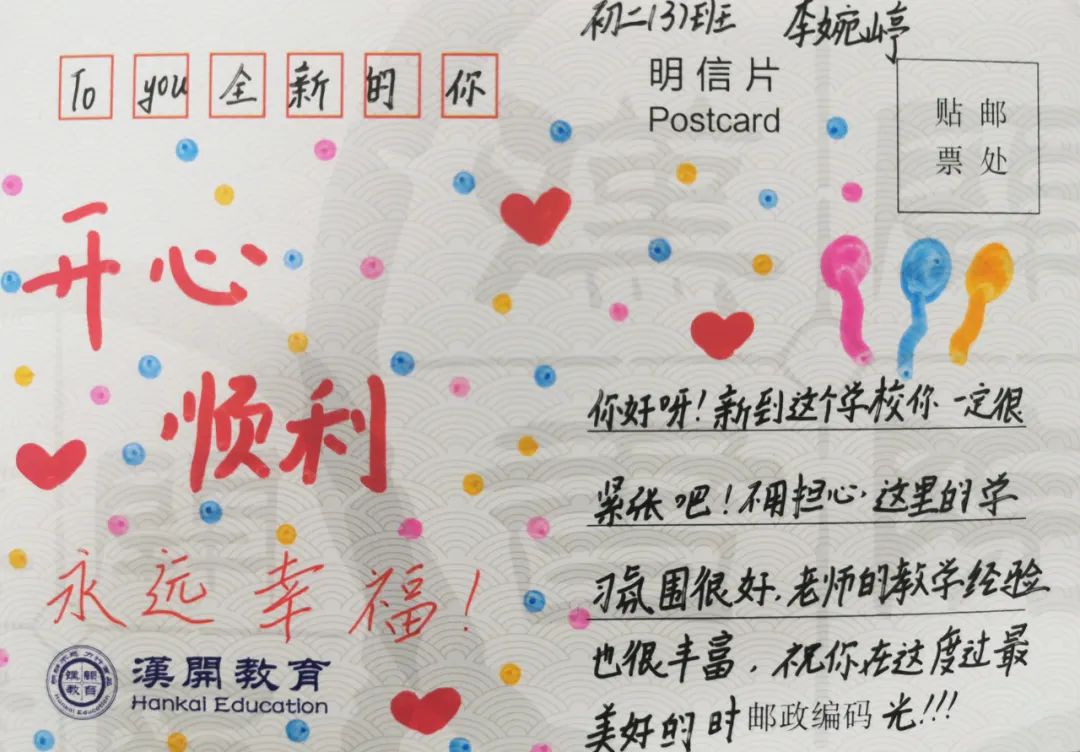 初二(3)班 李婉婷
To you 全新的你
明信片
Postcard
贴邮
票处
开心
顺利
永远幸福!
漢開教育
Hankai Education
你好呀!新到这个学校你一定很
紧张吧!不用担心.这里的学
习氛围很好.老师的教学经验
也很丰富.祝你在这度过最
美好的时邮政编码光!!!